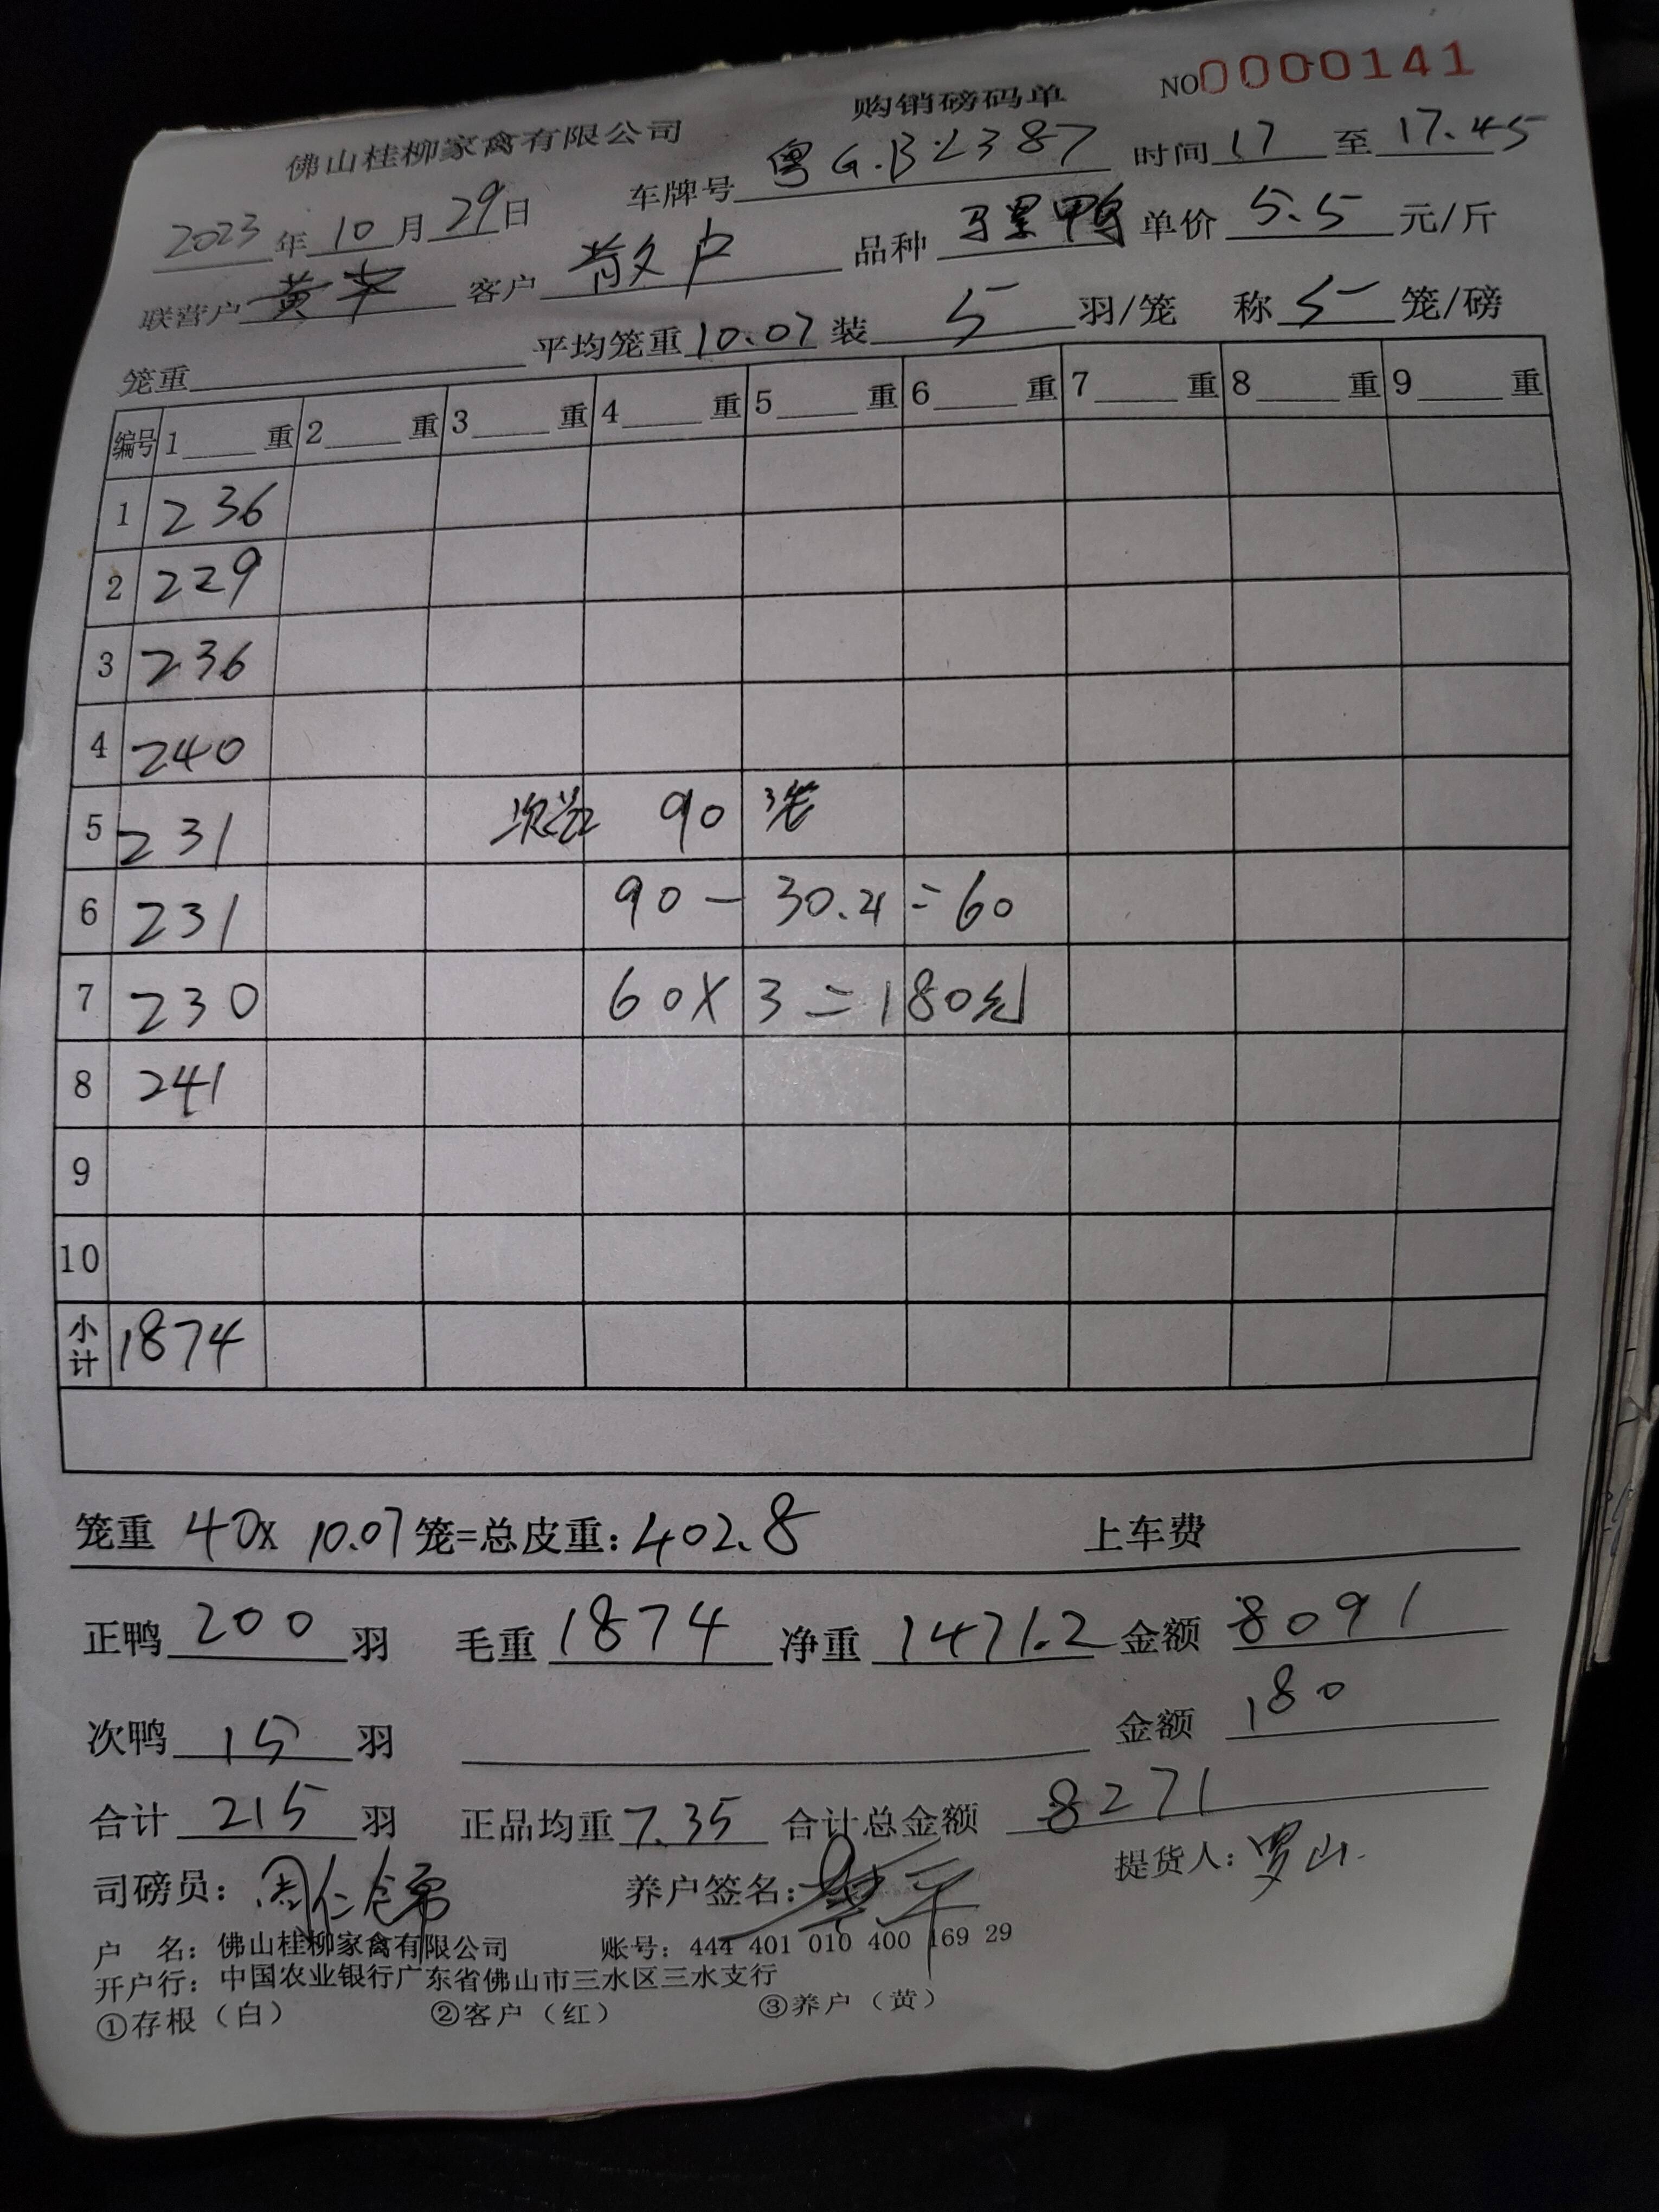 佛山桂柳家禽有限公司 购销磅码单 NO0000141
2023年10月29日 车牌号 粤G.BL387 时间 17 至 17.45
联营户 黄 客户 散户 品种 鸭 单价 5.5 元/斤
笼重 平均笼重 10.07 装 5 羽/笼 称 5 笼/磅
编号 1 重 2 重 3 重 4 重 5 重 6 重 7 重 8 重 9 重
1 236
2 229
3 236
4 240
5 231 90
6 231 90-30.4=60
7 230 60X3=180元
8 241
9
10
小计 1874
笼重 40X10.07 笼=总皮重:402.8 上车费
正鸭 200 羽 毛重 1874 净重 1471.2 金额 8091
次鸭 15 羽 金额 180
合计 215 羽 正品均重 7.35 合计总金额 8271
司磅员: 养户签名: 提货人: 罗山.
户 名: 佛山桂柳家禽有限公司 账号: 444 401 010 400 169 29
开户行: 中国农业银行广东省佛山市三水区三水支行
①存根（白） ②客户（红） ③养户（黄）